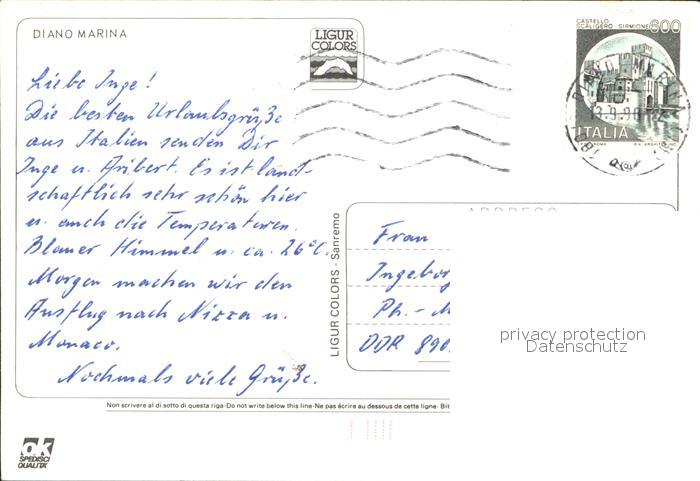 DIANO MARINA
LIGUR
COLORS
CASTELLO
SCALIGERO SIRMIONE 600
13.9.90
ITALIA
Liebe Inge!
Die besten Urlaubsgrüße
aus Italien senden Dir
Inge u. Aribert. Es ist land-
schaftlich sehr schön hier
u. auch die Temperaturen.
Blauer Himmel u. ca. 26°C.
Morgen machen wir den
Ausflug nach Nizza u.
Monaco.
Nochmals viele Grüße.
LIGUR COLORS - Sanremo
Frau
Ingeborg
Ph. - M
DDR 890
privacy protection
Datenschutz
Non scrivere al di sotto di questa riga-Do not write below this line-Ne pas écrire au dessous de cette ligne- Bit
ok
SPEDISCI
QUALITA'